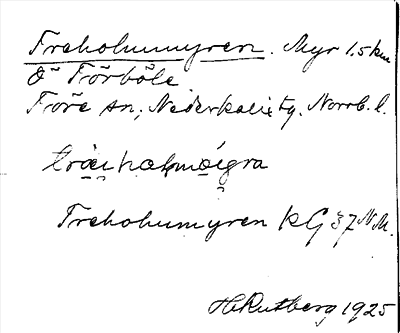 Treholmmyren. Myr 1.5 km
Ö Törböle
Töre sn, Nederkalix tg. Norrb. l.
Treholmmyren KG 37 NM.
H Rutberg 1925